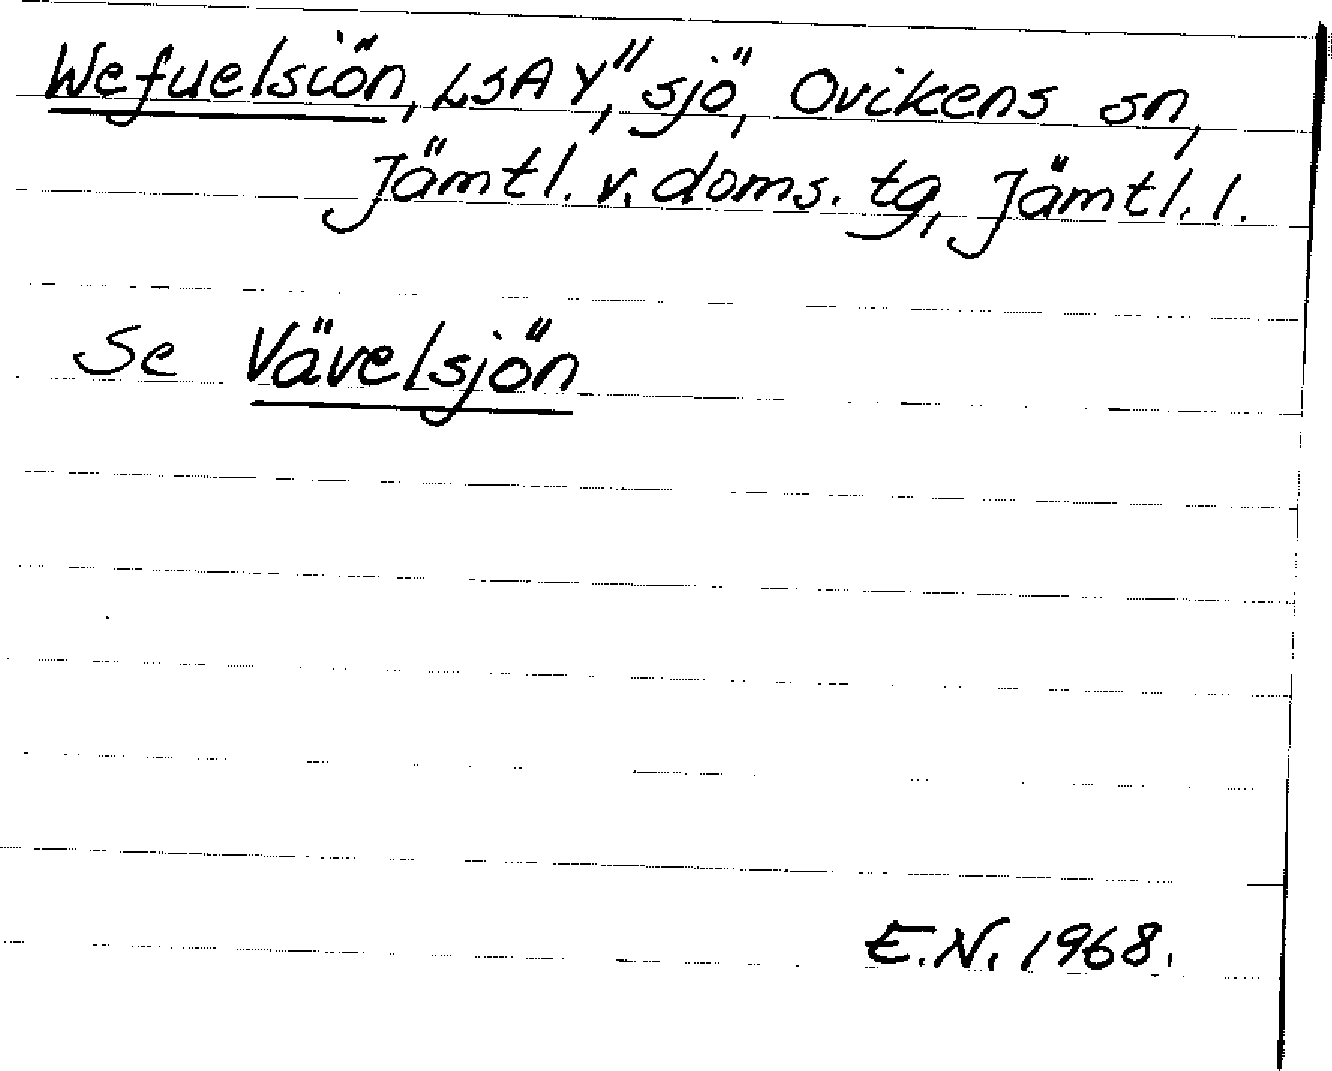 Wefuelsiön, LSA Y", sjö, Ovikens sn,
Jämtl. v. doms. tg, Jämtl. l.
Se Vävelsjön
E.N. 1968.